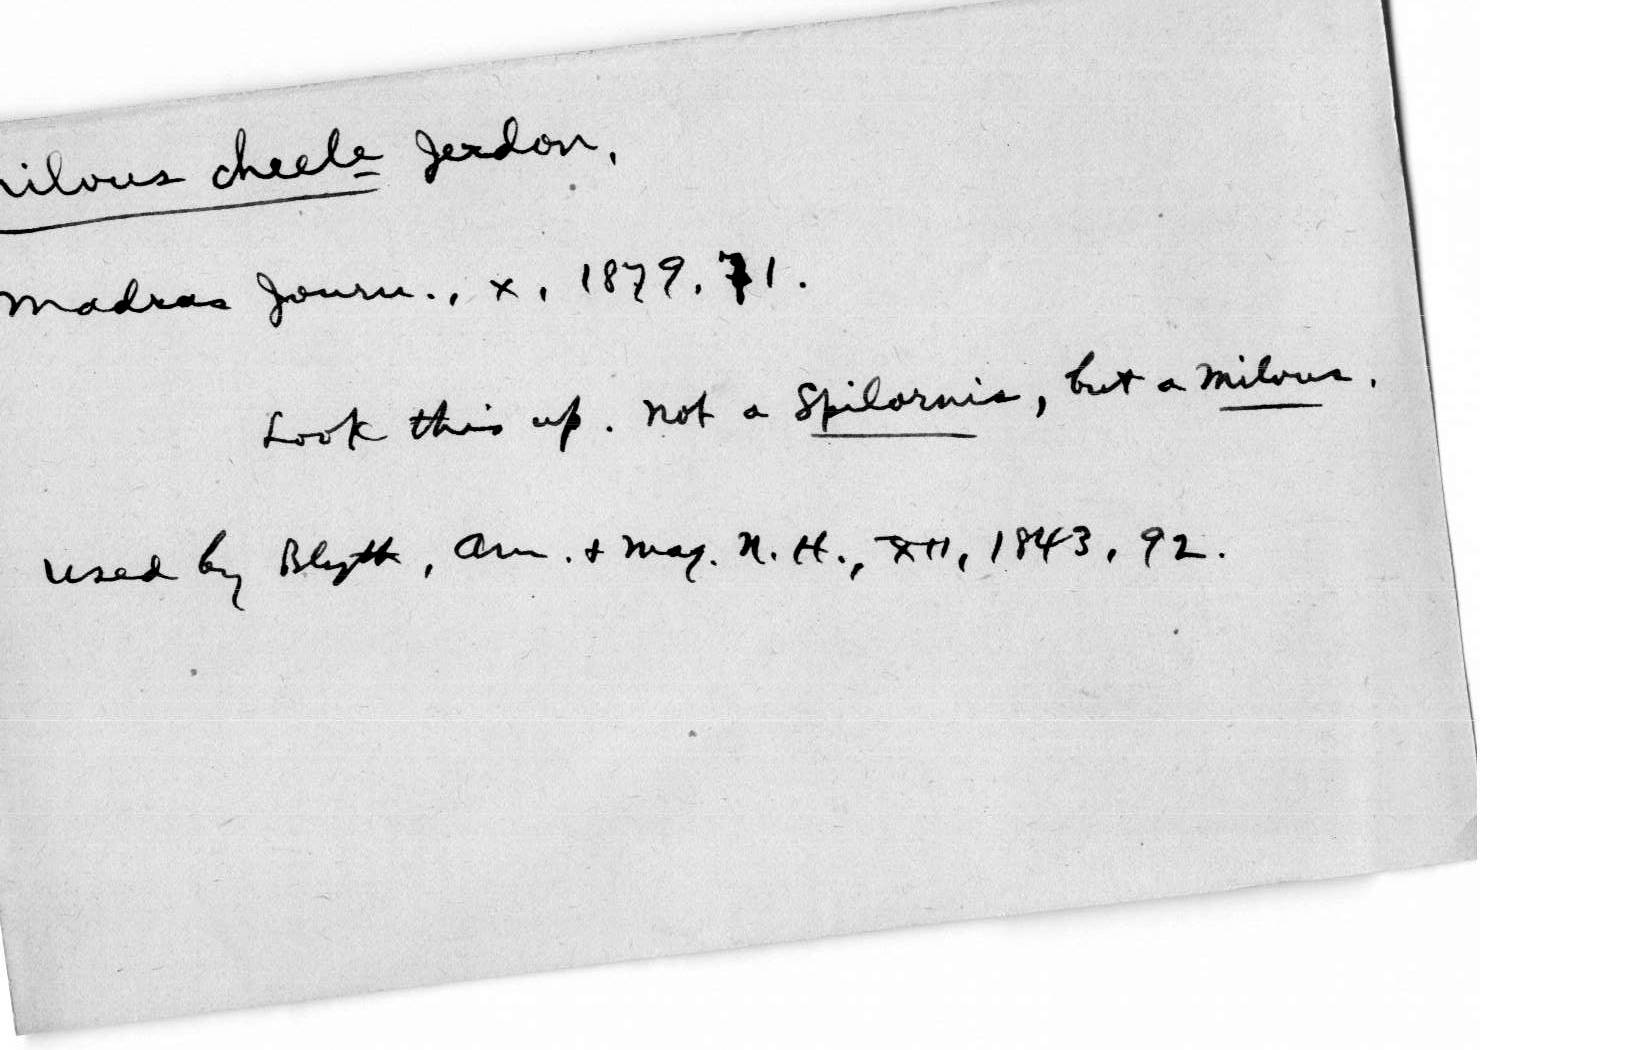 Milvus cheele Jerdon.
Madras Journ., x, 1879, 71.
Look this up. Not a Spilornis, but a Milvus.
Used by Blyth, Ann. & Mag. N. H., XII, 1843, 92.